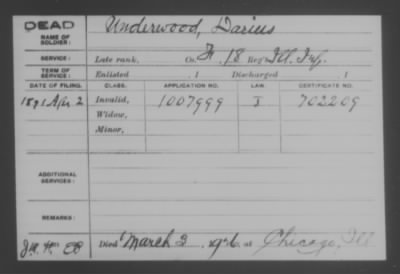 DEAD
NAME OF SOLDIER: Underwood, Darius
SERVICE: Late rank, Co. F, 18 Reg't Ill. Inf.
TERM OF SERVICE: Enlisted , 1 Discharged , 1
DATE OF FILING. CLASS. APPLICATION NO. LAW. CERTIFICATE NO.
1891 Apr 2 Invalid, 1007999 J 702209
Widow,
Minor,
ADDITIONAL SERVICES:
REMARKS:
Died March 2, 1926, at Chicago, Ill